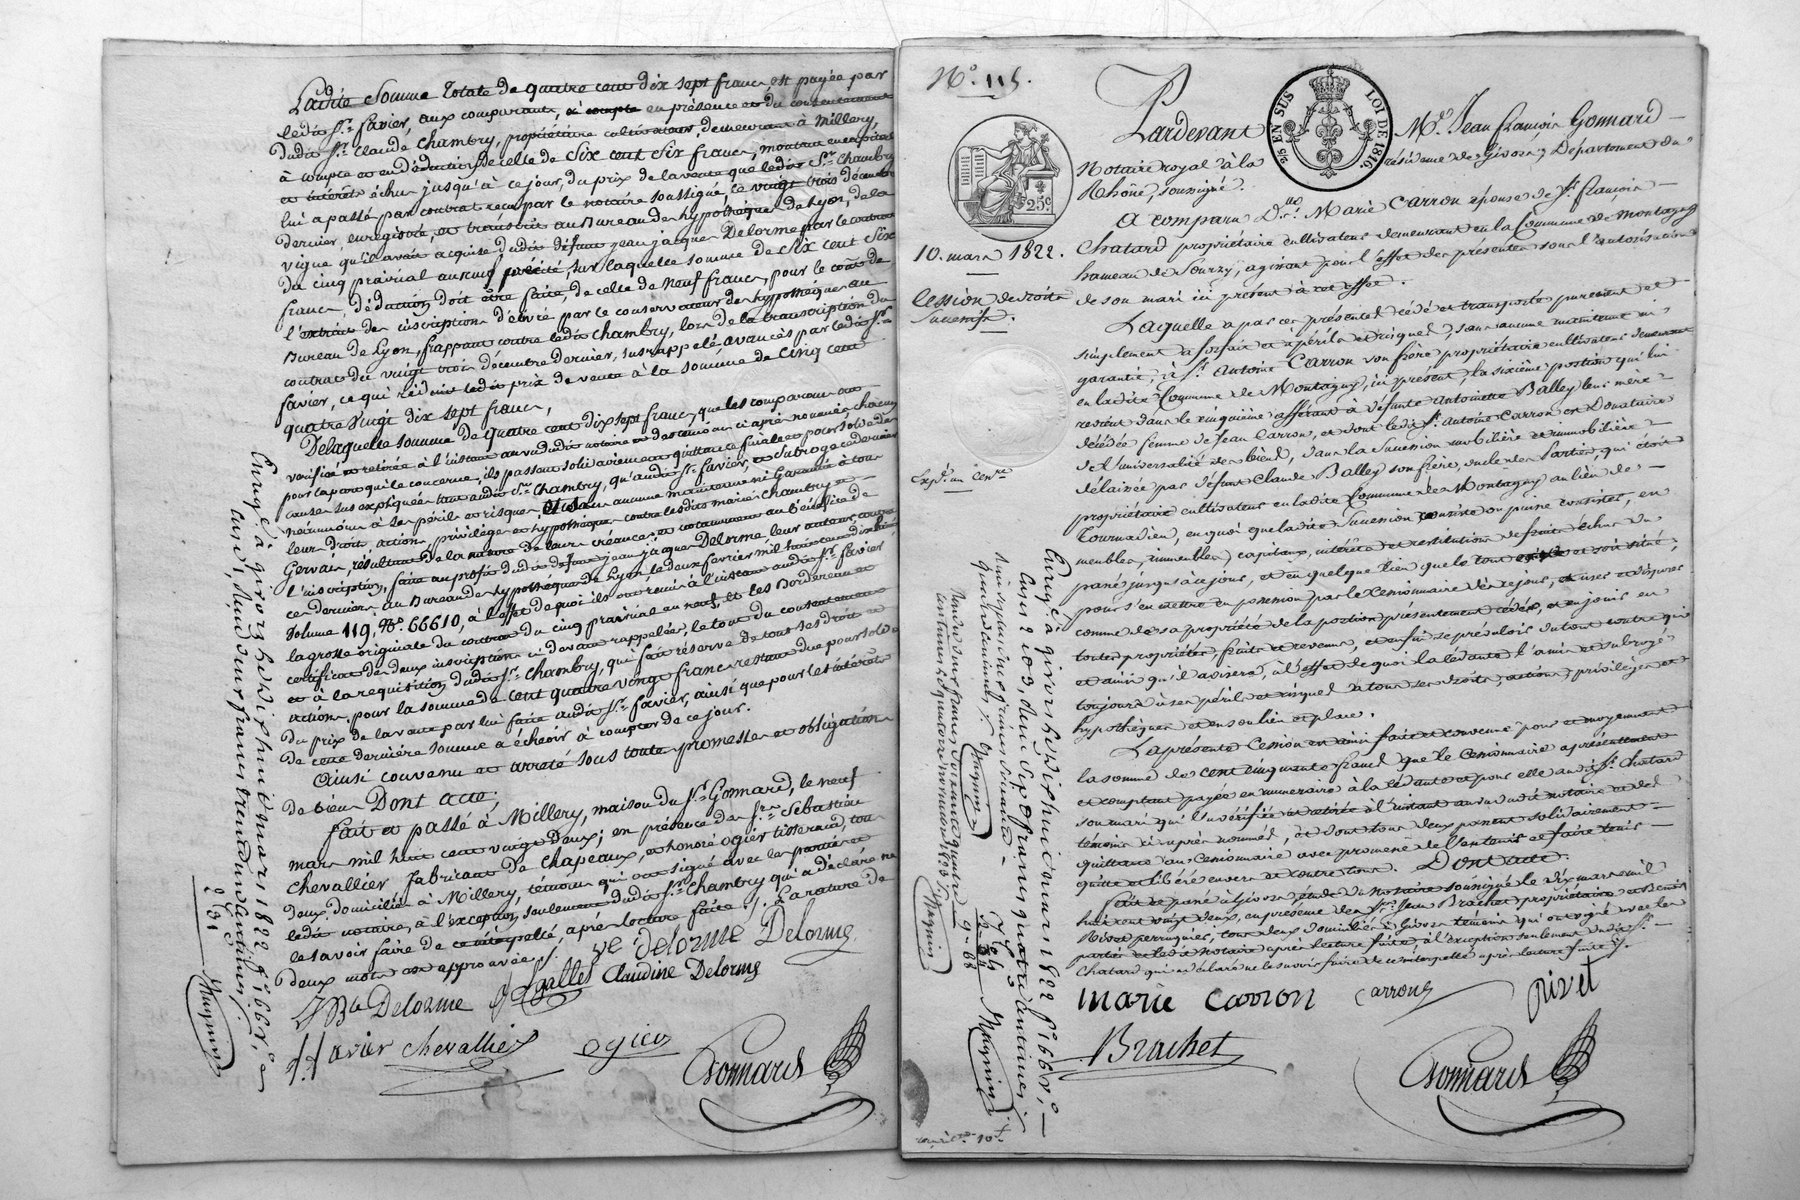 Ladite Somme totale de quatre cent dix sept francs, est payée par
ledit Sr. favier, aux comparants, à compte en présence et du consentement
dudit Sr. Claude Chambry, propriétaire cultivateur, demeurant à Millery,
à compte et en déduction de celle de Six cent Six francs, montant en capital
et intérêts échus jusqu'à ce jour, du prix de la vente que ledit Sr. Chambry
lui a passé par contrat reçu par le notaire soussigné, le vingt trois décembre
dernier, enregistré, et transcrit au Bureau des hypothèques de Lyon, de la
vigne qu'il avait acquise dudit défunt jean jacques Delorme par le contrat
du cinq prairial an neuf précité, sur laquelle somme de Six cent Six
francs, déduction doit être faite, de celle de Neuf francs, pour le coût de
l'extrait des inscriptions délivré par le conservateur des hypothèques au
Bureau de Lyon, frappant contre ledit Chambry, lors de la transcription du
contrat du vingt trois décembre dernier, susrappelé, avancés par ledit Sr.
favier, ce qui réduit ledit prix de vente à la somme de Cinq cent
quatre Vingt dix sept francs,
De laquelle somme de quatre cent dix sept francs, que les comparants ont
vérifié et retirée à l'instant au vu dudit notaire et des témoins ci après nommés chacun
pour la part qui le concerne, ils passent solidairement quittance finale et pour solde des
causes sus expliquées tant audit Sr. Chambry, qu'audit Sr. favier, et Subroge ce dernier
néanmoins à ses périls et risques et sans aucune maintenue ni Garantie à tous
leurs Droits, actions, privilèges et hypothèques contre lesdits mariés Chambry et
Gervais, résultant de la nature de leurs créances, et notamment au bénéfice de
l'inscription, faite au profit dudit défunt jean jacques Delorme, leur auteur contre
ces derniers au Bureau des hypothèques de Lyon le deux favrier mil huit cent dix huit
Volume 119, No. 66610, à l'effet de quoi ils ont remis à l'instant audit Sr. favier
la grosse originale du contrat du cinq prairial an neuf, et les Bordereau et
certificat des deux inscriptions ci devant rappelées, le tout du consentement
et à la réquisition dudit Sr. Chambry, qui fait réserve de tous ses droits et
actions, pour la somme de Cent quatre vingt francs restant due pour solde
du prix de la vente par lui faite audit Sr. favier, ainsi que pour les intérêts
de cette dernière somme à échoir à compter de ce jour.
Ainsi convenu et arrêté sous toute promesse et obligation
de biens Dont acte,
fait et passé à Millery, maison du Sr. Gonnard, le neuf
mars mil huit cent vingt Deux; en présence des Srs. Sébastien
Chevallier, fabricant de Chapeaux, et honoré Ogier tisserand, tous
deux domiciliés à Millery, témoins qui ont signé avec les parties et
ledit notaire, à l'exception seulement dudit Sr. Chambry qui a déclaré ne
le savoir faire de ce interpellé, après lecture faite /. La rature de
deux mots est approuvée /.
ve Delorme Delorme
JBte Delorme Claudine Delorme
f. favier Chevallier ogier Gonnard
Enregé. à givors le dix huit mars 1822 fo. 166 Vo.
No. 115.
2/5 EN SUS LOI DE 1816.
25c.
Pardevant Me. Jean François Gonnard
Notaire royal à la résidence de Givors, Département du
Rhône, soussigné.
A comparu De. Marie Carron épouse de Sr. François
Chatard propriétaire cultivateur demeurant en la Commune de Montagny
hameau de Sourzy, agissant pour l'effet des présentes sous l'autorisation
de son mari ici présent à cet effet.
10. mars 1822.
Cession de droits
Successifs.
Laquelle a par ces présentes cédé et transporté purement et
simplement à forfait et à périls et risques, sans aucune maintenue ni
garantie, à Sr. Antoine Carron son frère propriétaire cultivateur demeurant
en ladite Commune de Montagny, ici présent, la sixième portion qui lui
revient dans le cinquième afférant à défunte Antoinette Balley leur mère
décédée femme de Jean Carron, et dont ledit Sr. Antoine Carron est Donataire
de l'universalité des biens, dans la Succession mobilière et immobilière
délaissée par défunt Claude Balley son frère, oncle des Parties, qui était
propriétaire cultivateur en ladite Commune de Montagny au lieu de
Tournadieu, en quoi que ladite Succession consiste ou puisse consister, en
meubles, immeubles, capitaux, intérêts et restitutions de fruits échus du
passé jusqu'à ce jour, et en quelque lieu que le tout et soit situé,
pour s'en mettre en possession par le Cessionnaire dès ce jour, et user et disposer
comme de sa propriété de la portion présentement cédée, et en jouir en
toutes propriétés, fruits et revenus, et enfin se prévaloir du tout contre qui
et ainsi qu'il avisera, à l'effet de quoi la cédante l'a mis et subrogé
toujours à ses périls et risques à tous ses droits, actions, privilèges et
hypothèques et en son lieu et place.
La présente Cession est ainsi faite et convenue pour et moyennant
la somme de cent cinquante francs que le Cessionnaire a présentement
et comptant payée en numéraire à la cédante et pour elle audit Sr. Chatard
son mari qui l'a vérifiée et retirée à l'instant au vu dudit notaire et des
témoins ci après nommés, et dont tous deux passent solidairement
quittance au Cessionnaire avec promesse de l'en tenir et faire tenir
quitte et libéré envers et contre tous. Dont acte.
Fait et passé à Givors étude du Notaire soussigné le dix mars mil
huit cent vingt deux, en présence des Srs. Jean Brachet propriétaire et Benoit
Rivet perruquier, tous deux domiciliés à Givors témoins qui ont signé avec les
parties et ledit Notaire après lecture faite, à l'exception seulement dudit Sr.
Chatard qui a déclaré ne le savoir faire de ce interpellé après lecture faite /.
marie carron carron rivet
Brachet Gonnard
Enregé. à givors le dix huit mars 1822 fo. 166 Vo.